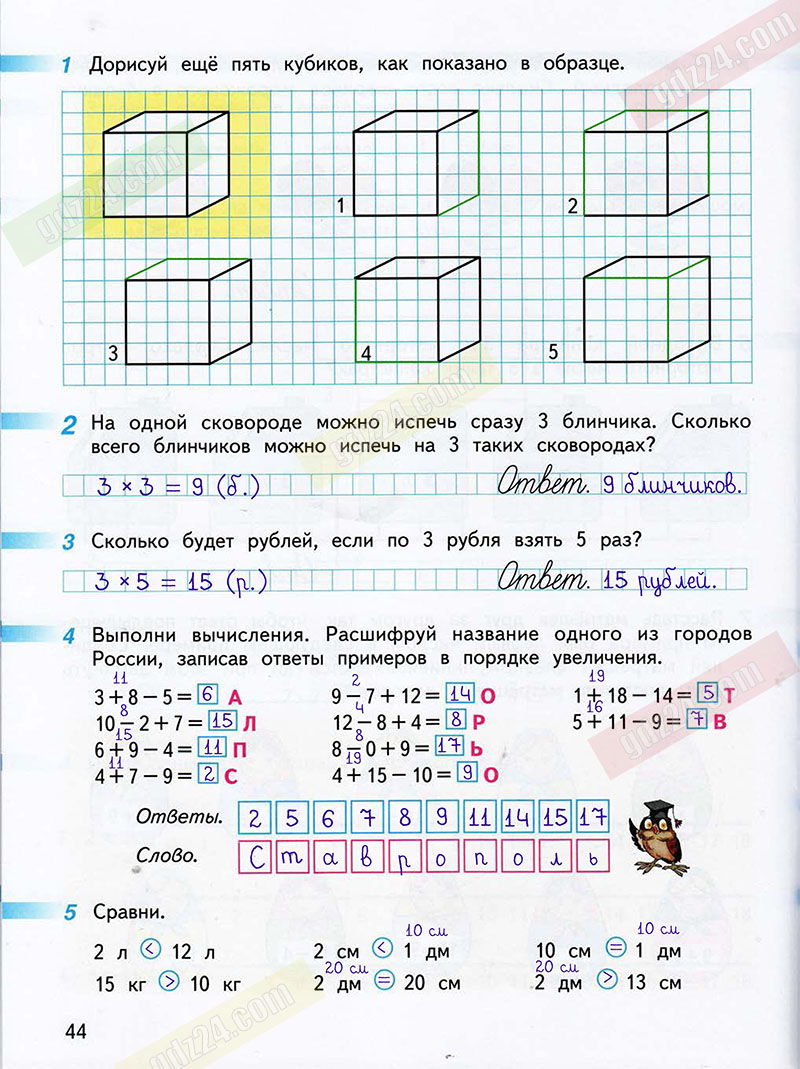 1 Дорисуй ещё пять кубиков, как показано в образце.
gdz24.com
gdz24.com
1
2
3
4
5
2 На одной сковороде можно испечь сразу 3 блинчика. Сколько
всего блинчиков можно испечь на 3 таких сковородах?
gdz24.com
3 × 3 = 9 (б.) Ответ. 9 блинчиков.
3 Сколько будет рублей, если по 3 рубля взять 5 раз?
3 × 5 = 15 (р.) Ответ. 15 рублей.
4 Выполни вычисления. Расшифруй название одного из городов
России, записав ответы примеров в порядке увеличения.
11 2 19
3 + 8 − 5 = 6 А 9 − 7 + 12 = 14 О 1 + 18 − 14 = 5 Т
8 4 16
10 − 2 + 7 = 15 Л 12 − 8 + 4 = 8 Р 5 + 11 − 9 = 7 В
15 8
6 + 9 − 4 = 11 П 8 − 0 + 9 = 17 Ь
11 19
4 + 7 − 9 = 2 С 4 + 15 − 10 = 9 О
gdz24.com
Ответы. 2 5 6 7 8 9 11 14 15 17
Слово. С т а в р о п о л ь
5 Сравни.
10 см 10 см
2 л < 12 л 2 см < 1 дм 10 см = 1 дм
20 см 20 см
15 кг > 10 кг 2 дм = 20 см 2 дм > 13 см
44
gdz24.com